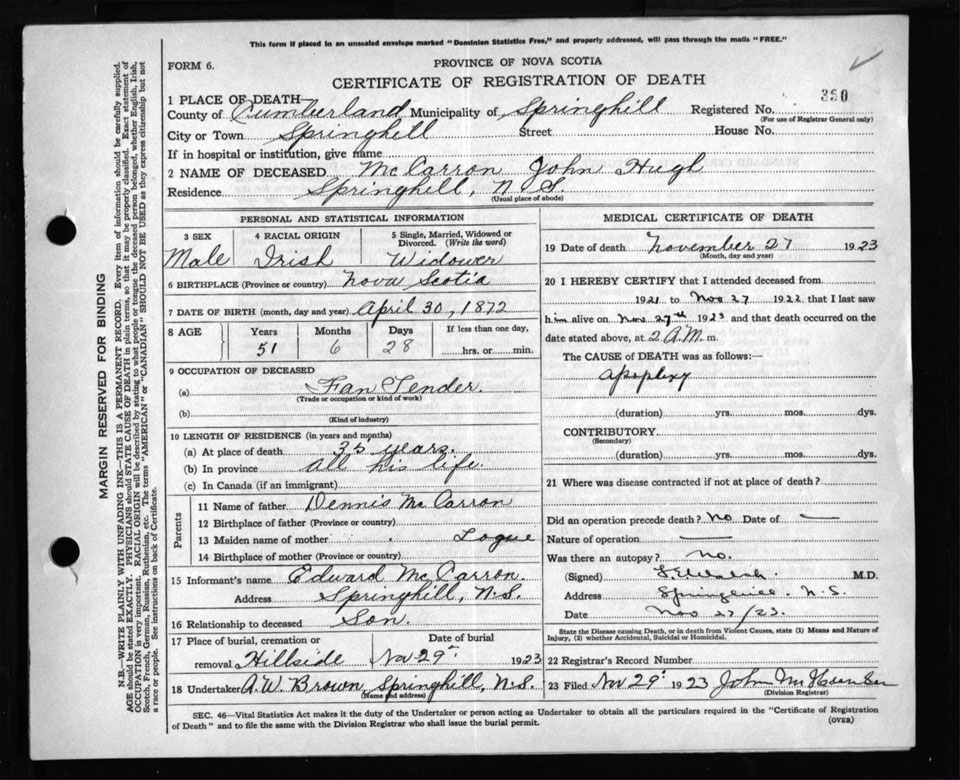 This form if placed in an unsealed envelope marked "Dominion Statistics Free," and properly addressed, will pass through the mails "FREE."
FORM 6.
PROVINCE OF NOVA SCOTIA
CERTIFICATE OF REGISTRATION OF DEATH
1 PLACE OF DEATH—
County of Cumberland Municipality of Springhill Registered No. 380
(For use of Registrar General only)
City or Town Springhill Street House No.
If in hospital or institution, give name
2 NAME OF DECEASED McCarron John Hugh
Residence Springhill, N.S.
(Usual place of abode)
PERSONAL AND STATISTICAL INFORMATION
3 SEX Male
4 RACIAL ORIGIN Irish
5 Single, Married, Widowed or Divorced. (Write the word) Widower
6 BIRTHPLACE (Province or country) Nova Scotia
7 DATE OF BIRTH (month, day and year) April 30, 1872
8 AGE Years 51 Months 6 Days 28 If less than one day, hrs. or min.
9 OCCUPATION OF DECEASED
(a) Fan Tender.
(Trade or occupation or kind of work)
(b)
(Kind of industry)
10 LENGTH OF RESIDENCE (in years and months)
(a) At place of death 35 years.
(b) In province all his life.
(c) In Canada (if an immigrant)
Parents
11 Name of father Dennis McCarron
12 Birthplace of father (Province or country)
13 Maiden name of mother Logue
14 Birthplace of mother (Province or country)
15 Informant's name Edward McCarron.
Address Springhill, N.S.
16 Relationship to deceased Son.
17 Place of burial, cremation or removal Hillside Date of burial Nov 29" 1923
18 Undertaker A.W. Brown, Springhill, N.S.
(Name and address)
MEDICAL CERTIFICATE OF DEATH
19 Date of death November 27 1923
(Month, day and year)
20 I HEREBY CERTIFY that I attended deceased from
1921 to Nov 27 1922 that I last saw
him alive on Nov. 27th 1923 and that death occurred on the
date stated above, at 2 A.M. m.
The CAUSE of DEATH was as follows:—
apoplexy
(duration) yrs. mos. dys.
CONTRIBUTORY
(Secondary)
(duration) yrs. mos. dys.
21 Where was disease contracted if not at place of death?
Did an operation precede death? No Date of —
Nature of operation —
Was there an autopsy? No.
(Signed) M.D.
Address Springhill. N.S.
Date Nov 27/23.
State the Disease causing Death, or in death from Violent Causes, state (1) Means and Nature of
Injury, (2) whether Accidental, Suicidal or Homicidal.
22 Registrar's Record Number
23 Filed Nov 29" 1923 John
(Division Registrar)
SEC. 46—Vital Statistics Act makes it the duty of the Undertaker or person acting as Undertaker to obtain all the particulars required in the "Certificate of Registration
of Death" and to file the same with the Division Registrar who shall issue the burial permit.
(OVER)
MARGIN RESERVED FOR BINDING
N.B.—WRITE PLAINLY WITH UNFADING INK—THIS IS A PERMANENT RECORD. Every item of information should be carefully supplied.
AGE should be stated EXACTLY. PHYSICIANS should STATE CAUSE OF DEATH in plain terms, so that it may be properly classified. Exact statement of
OCCUPATION is very important. RACIAL ORIGIN will be described by stating to what people or tongue the deceased person belonged, whether English, Irish,
Scotch, French, German, Russian, Ruthenian, etc. The terms "AMERICAN" or "CANADIAN" SHOULD NOT BE USED as they express citizenship but not
a race or people. See instructions on back of Certificate.